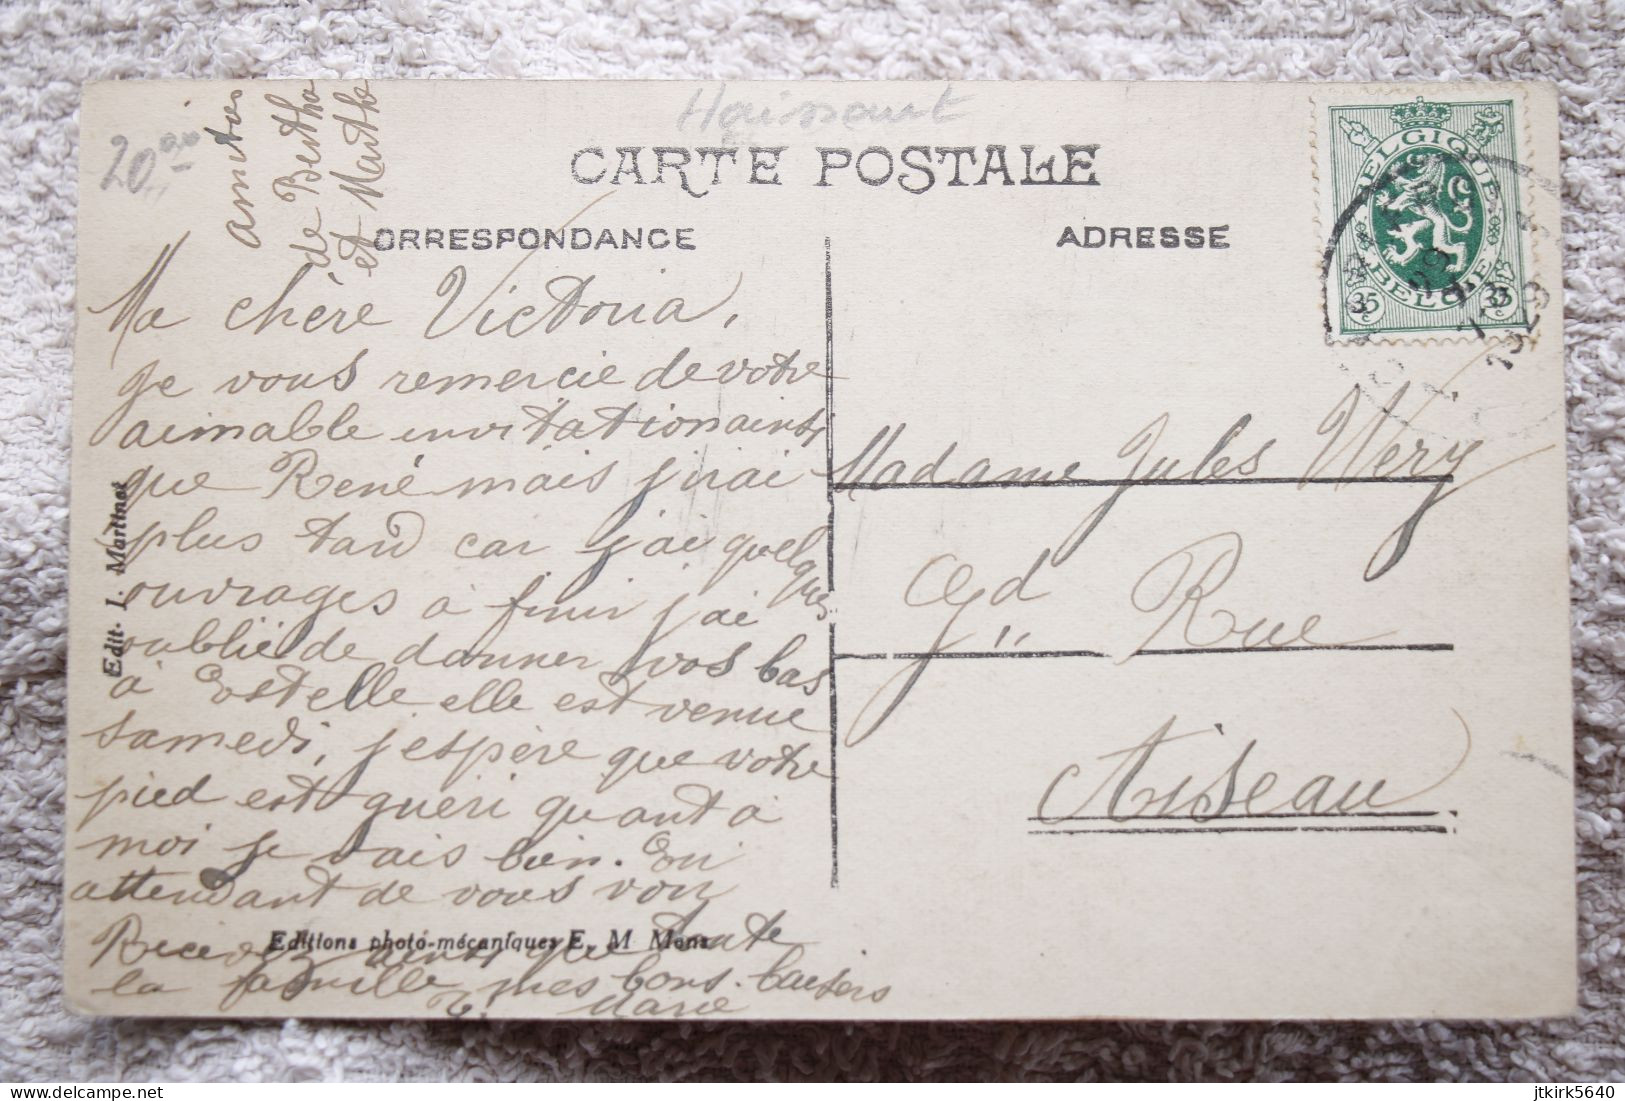 20
amitiés
de Bertha
et Marthe
CARTE POSTALE
ORRESPONDANCE
ADRESSE
BELGIQUE
BELGIË
35c 35c
1929
Ma chère Victoria,
je vous remercie de votre
aimable invitation ainsi
que René mais j'irai
plus tard car j'ai quelques
ouvrages à finir j'ai
oublié de donner vos bas
à Estelle elle est venue
samedi, j'espère que votre
pied est guéri quant à
moi je vais bien. En
attendant de vous voir
Recevez ainsi que toute
la famille mes bons baisers
Marie
Madame Jules Wéry
Gd Rue
Aiseau
Edit. I. Martinet
Editions photo-mécaniques E. M Mons
www.delcampe.net
jtkirk5640